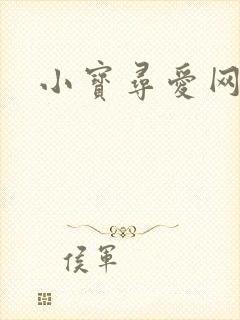 小寶尋愛网
侯軍